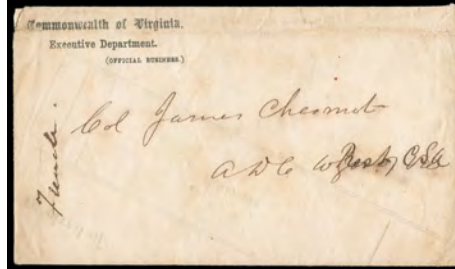 Commonwealth of Virginia,
Executive Department.
(OFFICIAL BUSINESS.)
Col James Chesnut
A D C to Prest CSA